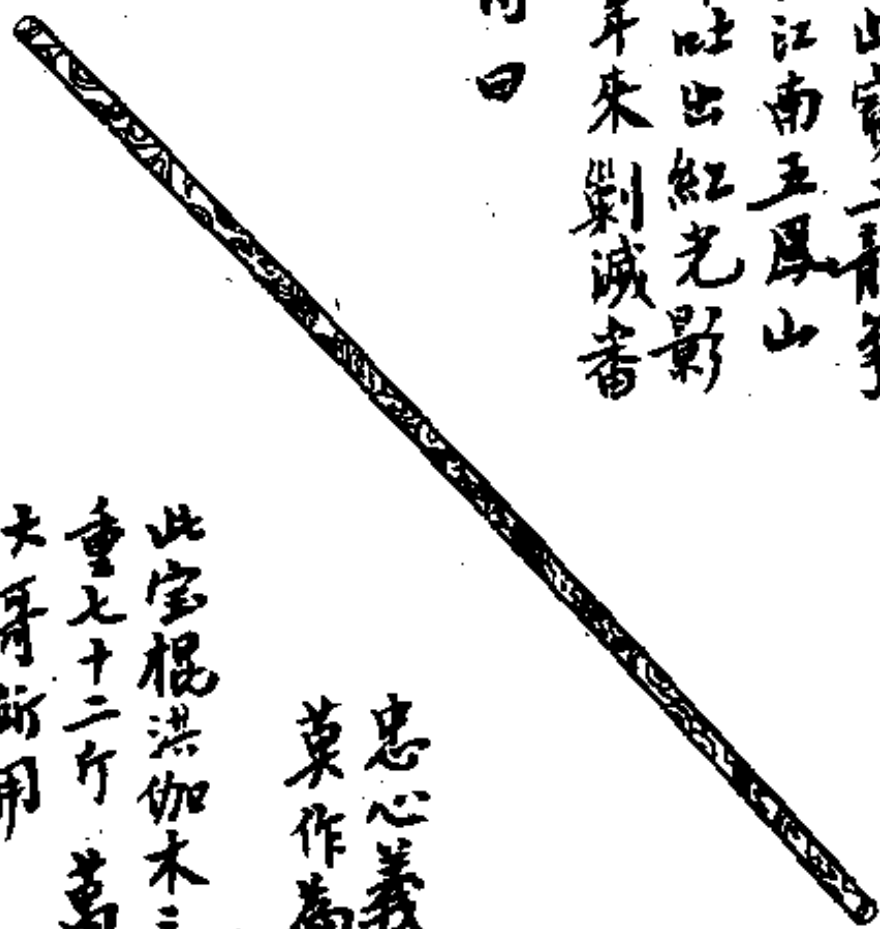 此寳二龍爭
江南五鳳山
吐出紅光影
年來剿滅畨
曰
忠心義
莫作
此宝棍洪伽木三
重七十二斤 萬
大哥所用